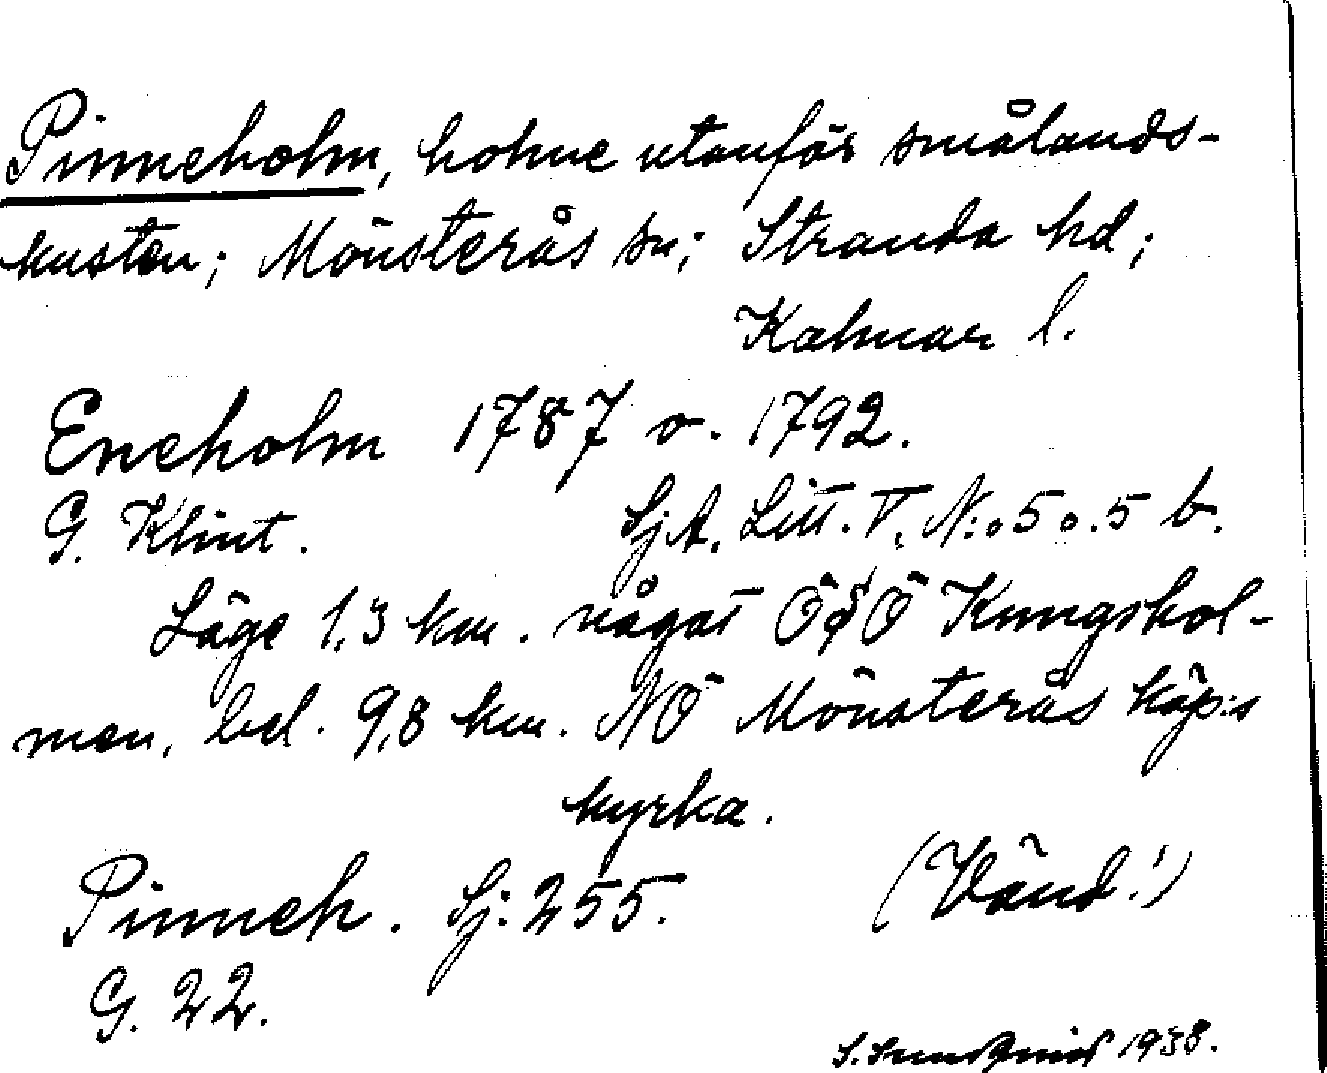 Pinneholm, holme utanför smålands-
kusten; Mönsterås sn; Stranda hd;
Kalmar l.
Eneholm 1787 o. 1792.
G. Klint. Sj A. Litt. V. N:o 5 o. 5 b.
Läge 1,3 km. något ÖSÖ Kungshol-
men, bel. 9,8 km. NÖ Mönsterås köp:s
kyrka.
Pinneh. Sj: 255. (Vänd!)
G. 22.
S. 1938.